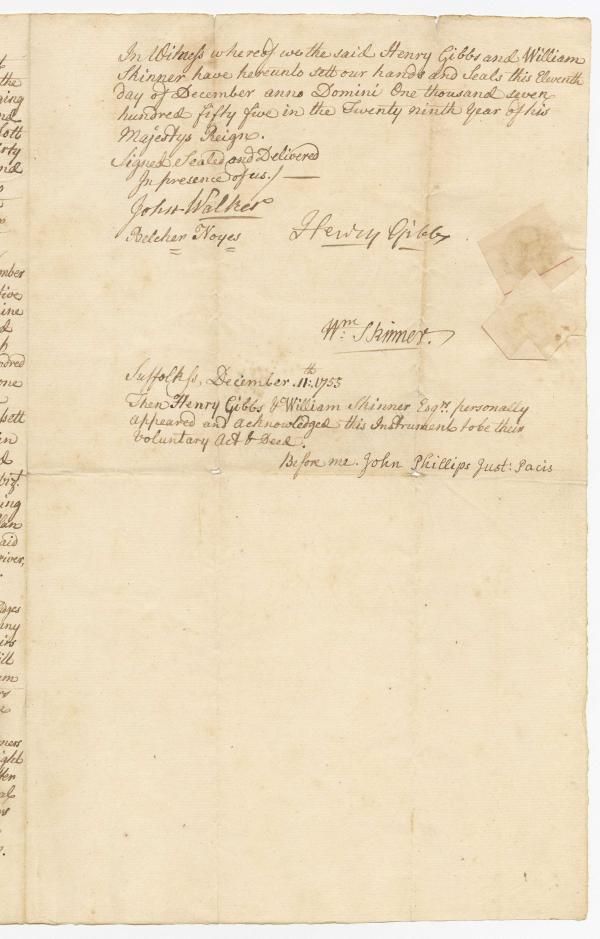 In Witness whereof we the said Henry Gibbs and William
Skinner have hereunto sett our hands and Seals this Eleventh
day of December anno Domini One thousand seven
hundred fifty five in the Twenty ninth Year of his
Majestys Reign.
Signed Sealed and Delivered
In presence of us
John Walker
Belcher Noyes
Henry Gibbs
Wm. Skinner.
Suffolk ss. December .11th: 1755
Then Henry Gibbs & William Skinner Esqrs. personally
appeared and acknowledged this Instrument to be their
voluntary Act & Deed.
Before me. John Phillips Just: Pacis
the
ging
nd
lott
irty
nd
mber
five
ine
d
k
ndred
one
sett
in
d
bizt.
ing
lan
aid
river,
dges
any
irs
ill
um
rs
ners
ight
ften
al